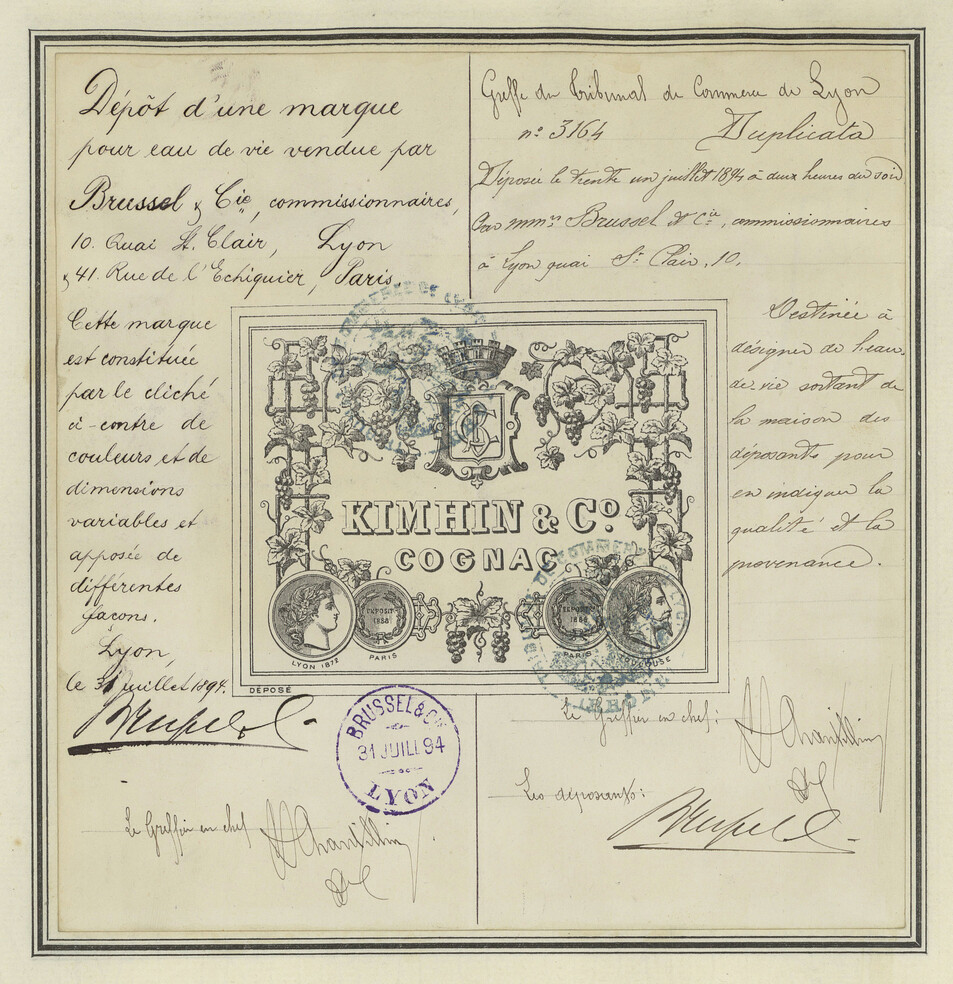 Dépôt d'une marque
pour eau de vie vendue par
Brussel & Cie, commissionnaires,
10. Quai St. Clair, Lyon
& 41. Rue de l'Echiquier, Paris.
Cette marque
est constituée
par le cliché
ci-contre de
couleurs et de
dimensions
variables et
apposée de
différentes
façons.
Lyon,
le 31 juillet 1894.
Le Greffier en chef
Greffe du Tribunal de Commerce de Lyon
n° 3164 Duplicata
Déposée le trente un juillet 1894 à deux heures du soir
Par mm rs Brussel et Cie, commissionnaires
à Lyon quai St Clair, 10.
Destinée à
désigner de l'eau-
de-vie sortant de
la maison des
déposants pour
en indiquer la
qualité et la
provenance.
KIMHIN & Co
COGNAC
LYON 1872
EXPOSIT
1886
PARIS
1886
PARIS
TOULOUSE
DÉPOSÉ
BRUSSEL & Cie
31 JUIL 94
LYON
Le Greffier en chef:
Les déposants: